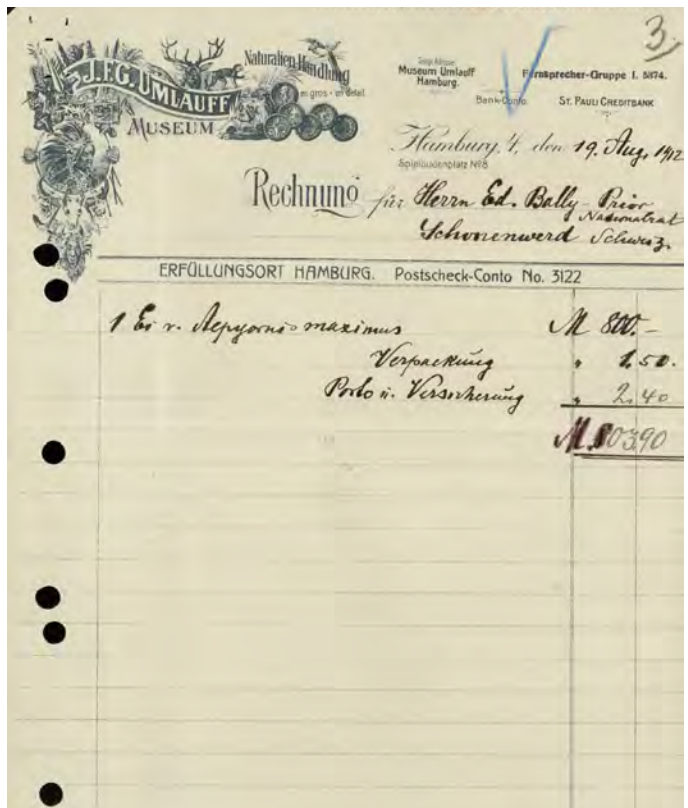 3.
J.F.G. UMLAUFF
MUSEUM
Naturalien-Handlung
en gros - en detail.
Museum Umlauff
Hamburg.
Fernsprecher-Gruppe I. 5874.
Bank-Conto ST. PAULI CREDITBANK
Hamburg, 4, den 19. Aug. 1912
Spielbudenplatz No 8
Rechnung für Herrn Ed. Bally-Prior
Nationalrat
Schönenwerd Schweiz.
ERFÜLLUNGSORT HAMBURG. Postscheck-Conto No. 3122
1 Ei v. Aepyornis maximus M 800.-
Verpackung " 1.50.
Porto u. Versicherung " 2.40
M. 803.90